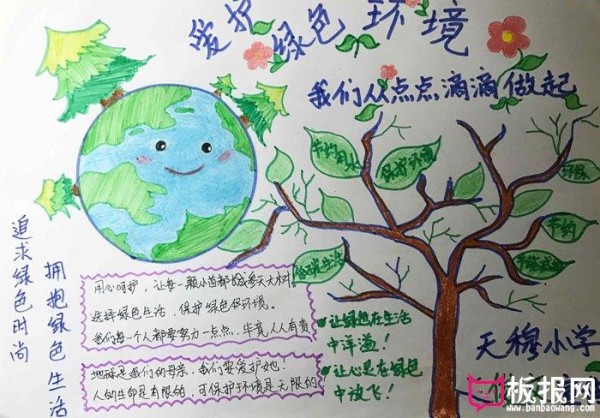 爱护绿色环境
我们从点点滴滴做起
节约用水
保护环境
环保
节约
低碳生活
追求绿色时尚
拥抱绿色生活
用心呵护，让每一颗小苗都成参天大树。
选择绿色生活，保护绿色的环境。
我们每一个人都要努力一点点，毕竟，人人有责
地球是我们的母亲，我们要爱护她！
人的生命是有限的，可保护环境是无限的
让绿色在生活
中洋溢！
让心灵在绿色
中放飞！
天穆小学
板报网
www.banbaowang.com